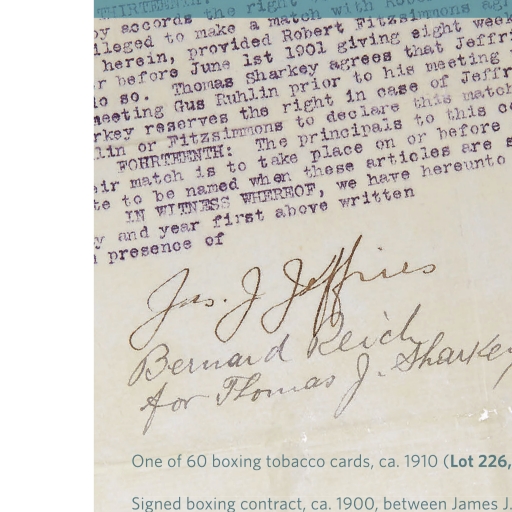 THIRTEENTH: the right
by accords the right to
lleged to make a match with Robert Fitzsimmons agr
herein, provided Robert Fitzsimmons
r before June 1st 1901 giving eight week
o so. Thomas Sharkey agrees that Jeffri
meeting Gus Ruhlin prior to his meeting
rkey reserves the right in case of Jeffr
lin or Fitzsimmons to declare this match
FOHRTEENTH: The principals to this co
eir match is to take place on or before
te to be named when these articles are s
IN WITNESS WHEREOF, we have hereunto
y and year first above written
presence of
Jas. J Jeffries
Bernard Reich
for Thomas J. Sharkey
One of 60 boxing tobacco cards, ca. 1910 (Lot 226,
Signed boxing contract, ca. 1900, between James J.